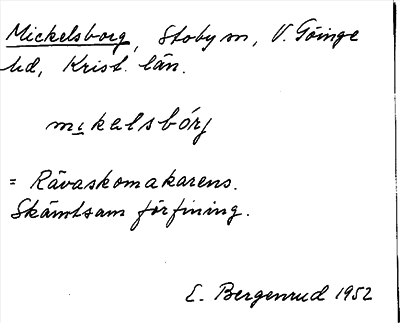 Mickelsborg, Stoby sn, V. Göinge
hd, Krist. län.
mıkalsbórj
= Rävaskomakarens.
Skämtsam förfining.
E. Bergenrud 1952